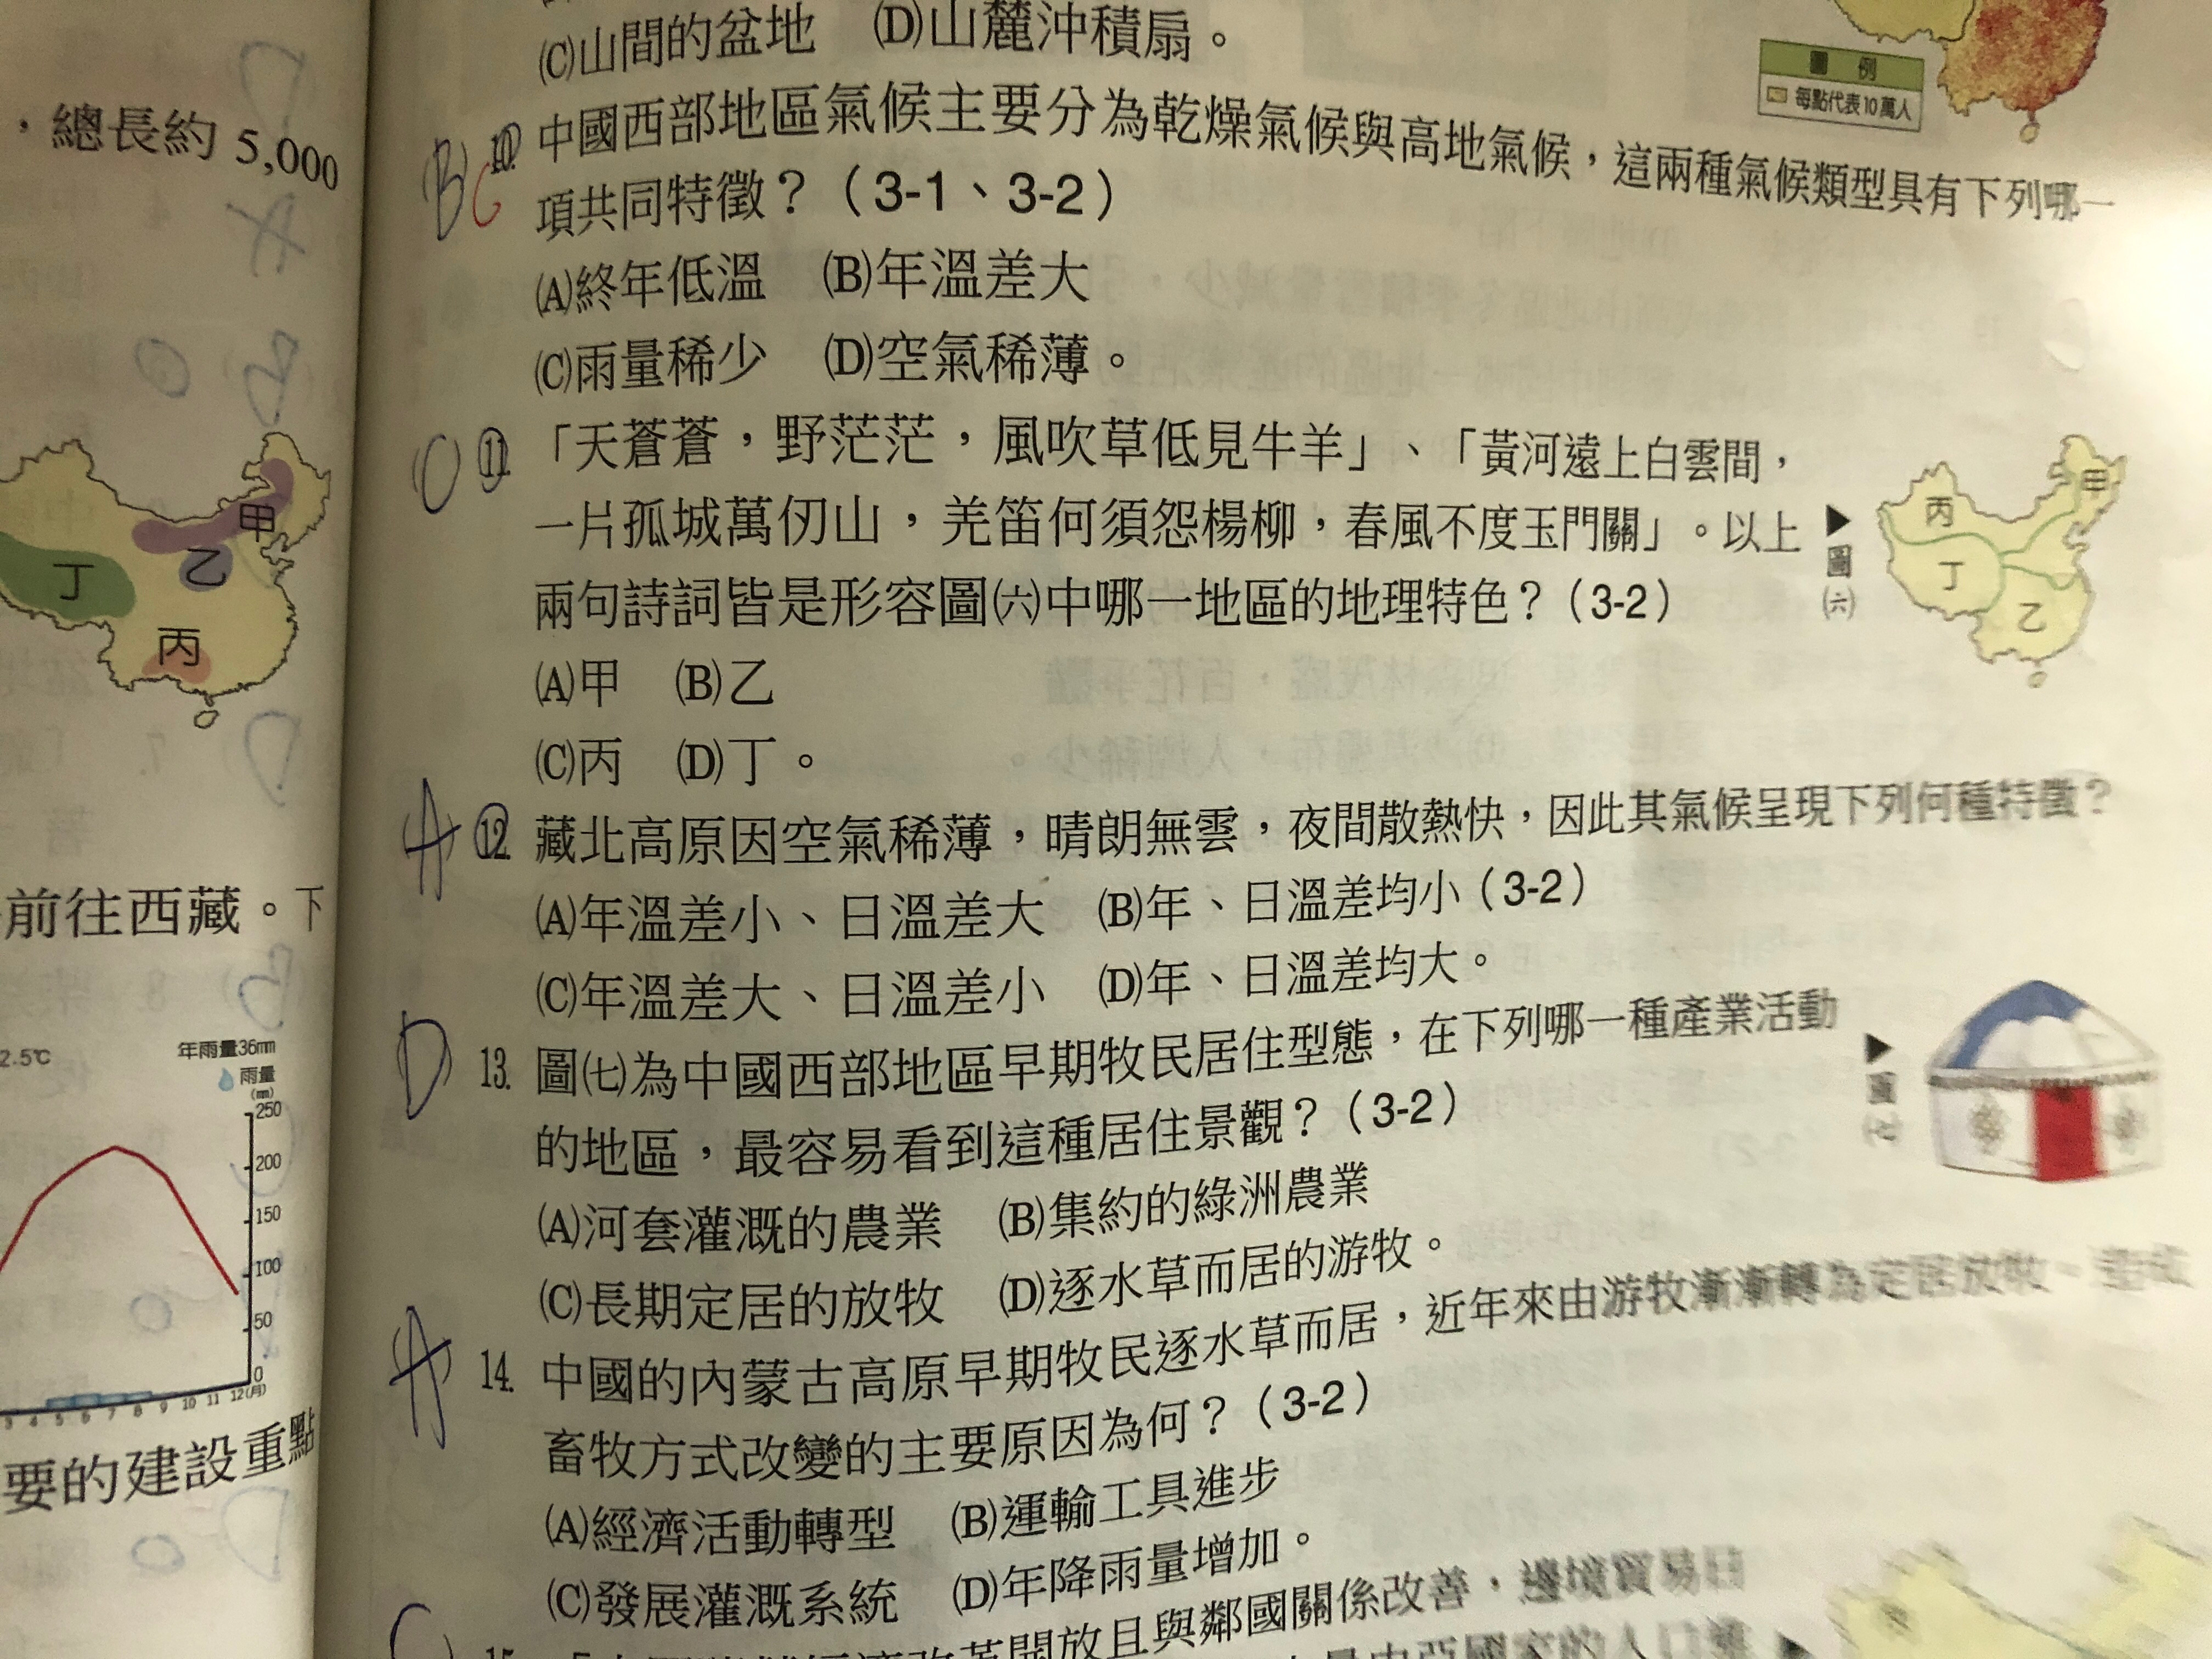 ，總長約 5,000
甲
乙
丁
丙
前往西藏。下
2.5℃
年雨量36mm
雨量
(mm)
250
200
150
100
50
0
3 4 5 6 7 8 9 10 11 12(月)
要的建設重點
(C)山間的盆地 (D)山麓沖積扇。
圖 例
每點代表10萬人
B C 10. 中國西部地區氣候主要分為乾燥氣候與高地氣候，這兩種氣候類型具有下列哪一
項共同特徵？（3-1、3-2）
(A)終年低溫 (B)年溫差大
(C)雨量稀少 (D)空氣稀薄。
C 11. 「天蒼蒼，野茫茫，風吹草低見牛羊」、「黃河遠上白雲間，
一片孤城萬仞山，羌笛何須怨楊柳，春風不度玉門關」。以上
兩句詩詞皆是形容圖(六)中哪一地區的地理特色？（3-2）
(A)甲 (B)乙
(C)丙 (D)丁。
▶圖(六)
甲
丙
丁
乙
A 12. 藏北高原因空氣稀薄，晴朗無雲，夜間散熱快，因此其氣候呈現下列何種特徵？
(A)年溫差小、日溫差大 (B)年、日溫差均小（3-2）
(C)年溫差大、日溫差小 (D)年、日溫差均大。
D 13. 圖(七)為中國西部地區早期牧民居住型態，在下列哪一種產業活動
的地區，最容易看到這種居住景觀？（3-2）
(A)河套灌溉的農業 (B)集約的綠洲農業
(C)長期定居的放牧 (D)逐水草而居的游牧。
▶圖(七)
A 14. 中國的內蒙古高原早期牧民逐水草而居，近年來由游牧漸漸轉為定居放牧，造成
畜牧方式改變的主要原因為何？（3-2）
(A)經濟活動轉型 (B)運輸工具進步
(C)發展灌溉系統 (D)年降雨量增加。
改革開放且與鄰國關係改善，邊境貿易日